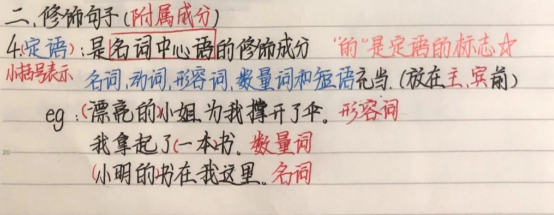 二、修饰句子(附属成分)
4.(定语):是名词中心语的修饰成分 "的"是定语的标志☆
小括号表示 名词,动词,形容词,数量词和短语充当.(放在主,宾前)
eg:(漂亮的)小姐为我撑开了伞。形容词
我拿起了(一本)书.数量词
(小明的)书在我这里。名词